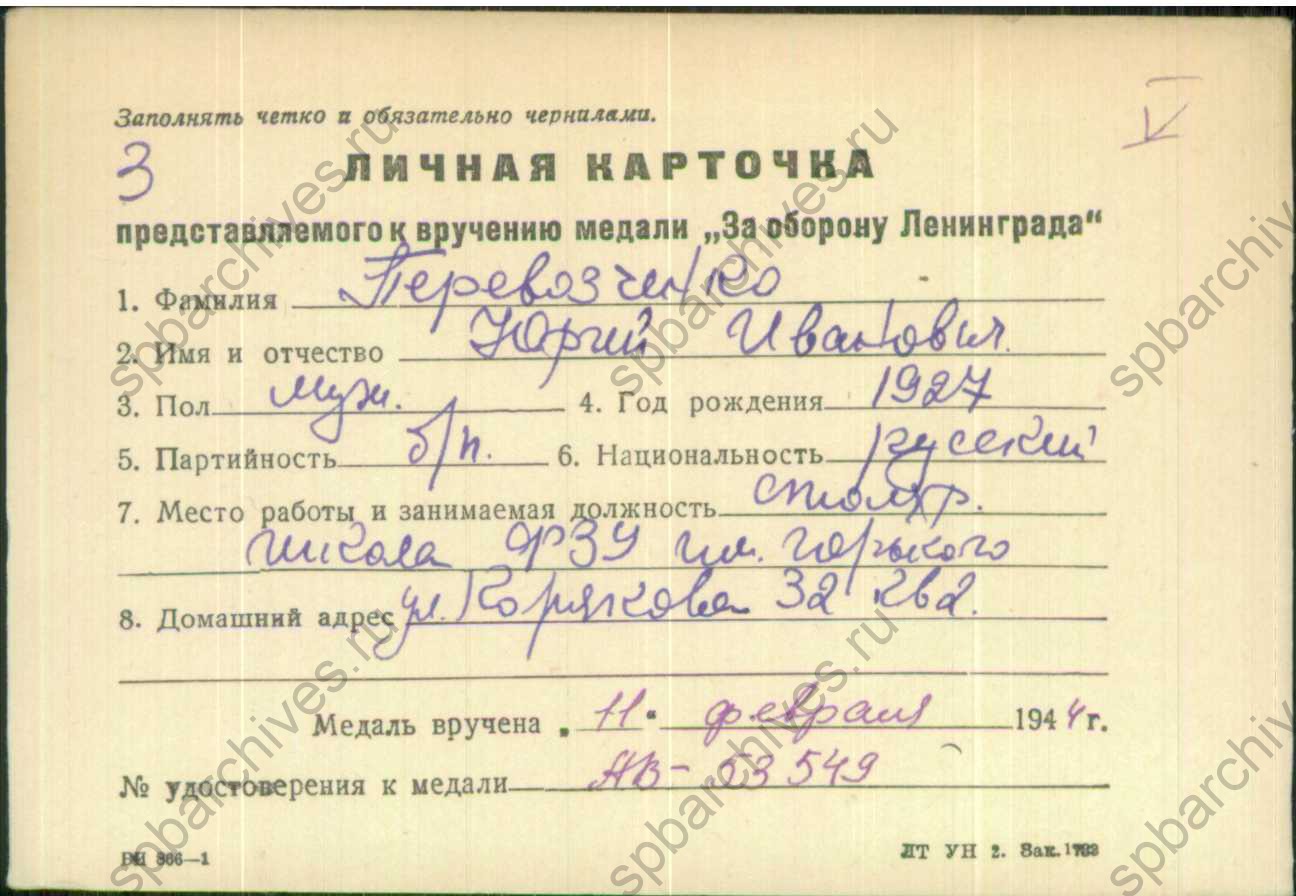 Заполнять четко и обязательно чернилами.
V
3
ЛИЧНАЯ КАРТОЧКА
представляемого к вручению медали „За оборону Ленинграда“
1. Фамилия Перевозченко
2. Имя и отчество Юрий Иванович.
3. Пол муж. 4. Год рождения 1927
5. Партийность б/п. 6. Национальность русский
7. Место работы и занимаемая должность столяр.
школа ФЗУ им. Горького
8. Домашний адрес ул. Корякова 32 кв 2.
Медаль вручена „11“ февраля 1944 г.
№ удостоверения к медали АВ- 53549
РИ 866—1 ЛТ УН 2. Зак.
spbarchives.ru